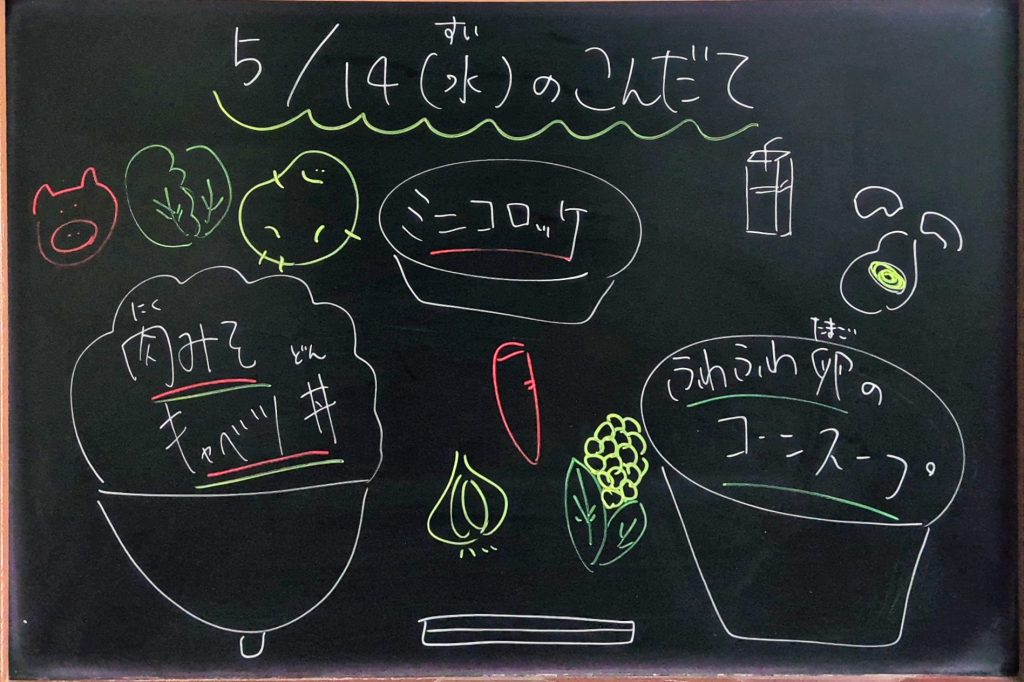 5/14(水)のこんだて
すい
ミニコロッケ
にく
肉みそ
どん
キャベツ丼
たまご
ふわふわ卵の
コーンスープ